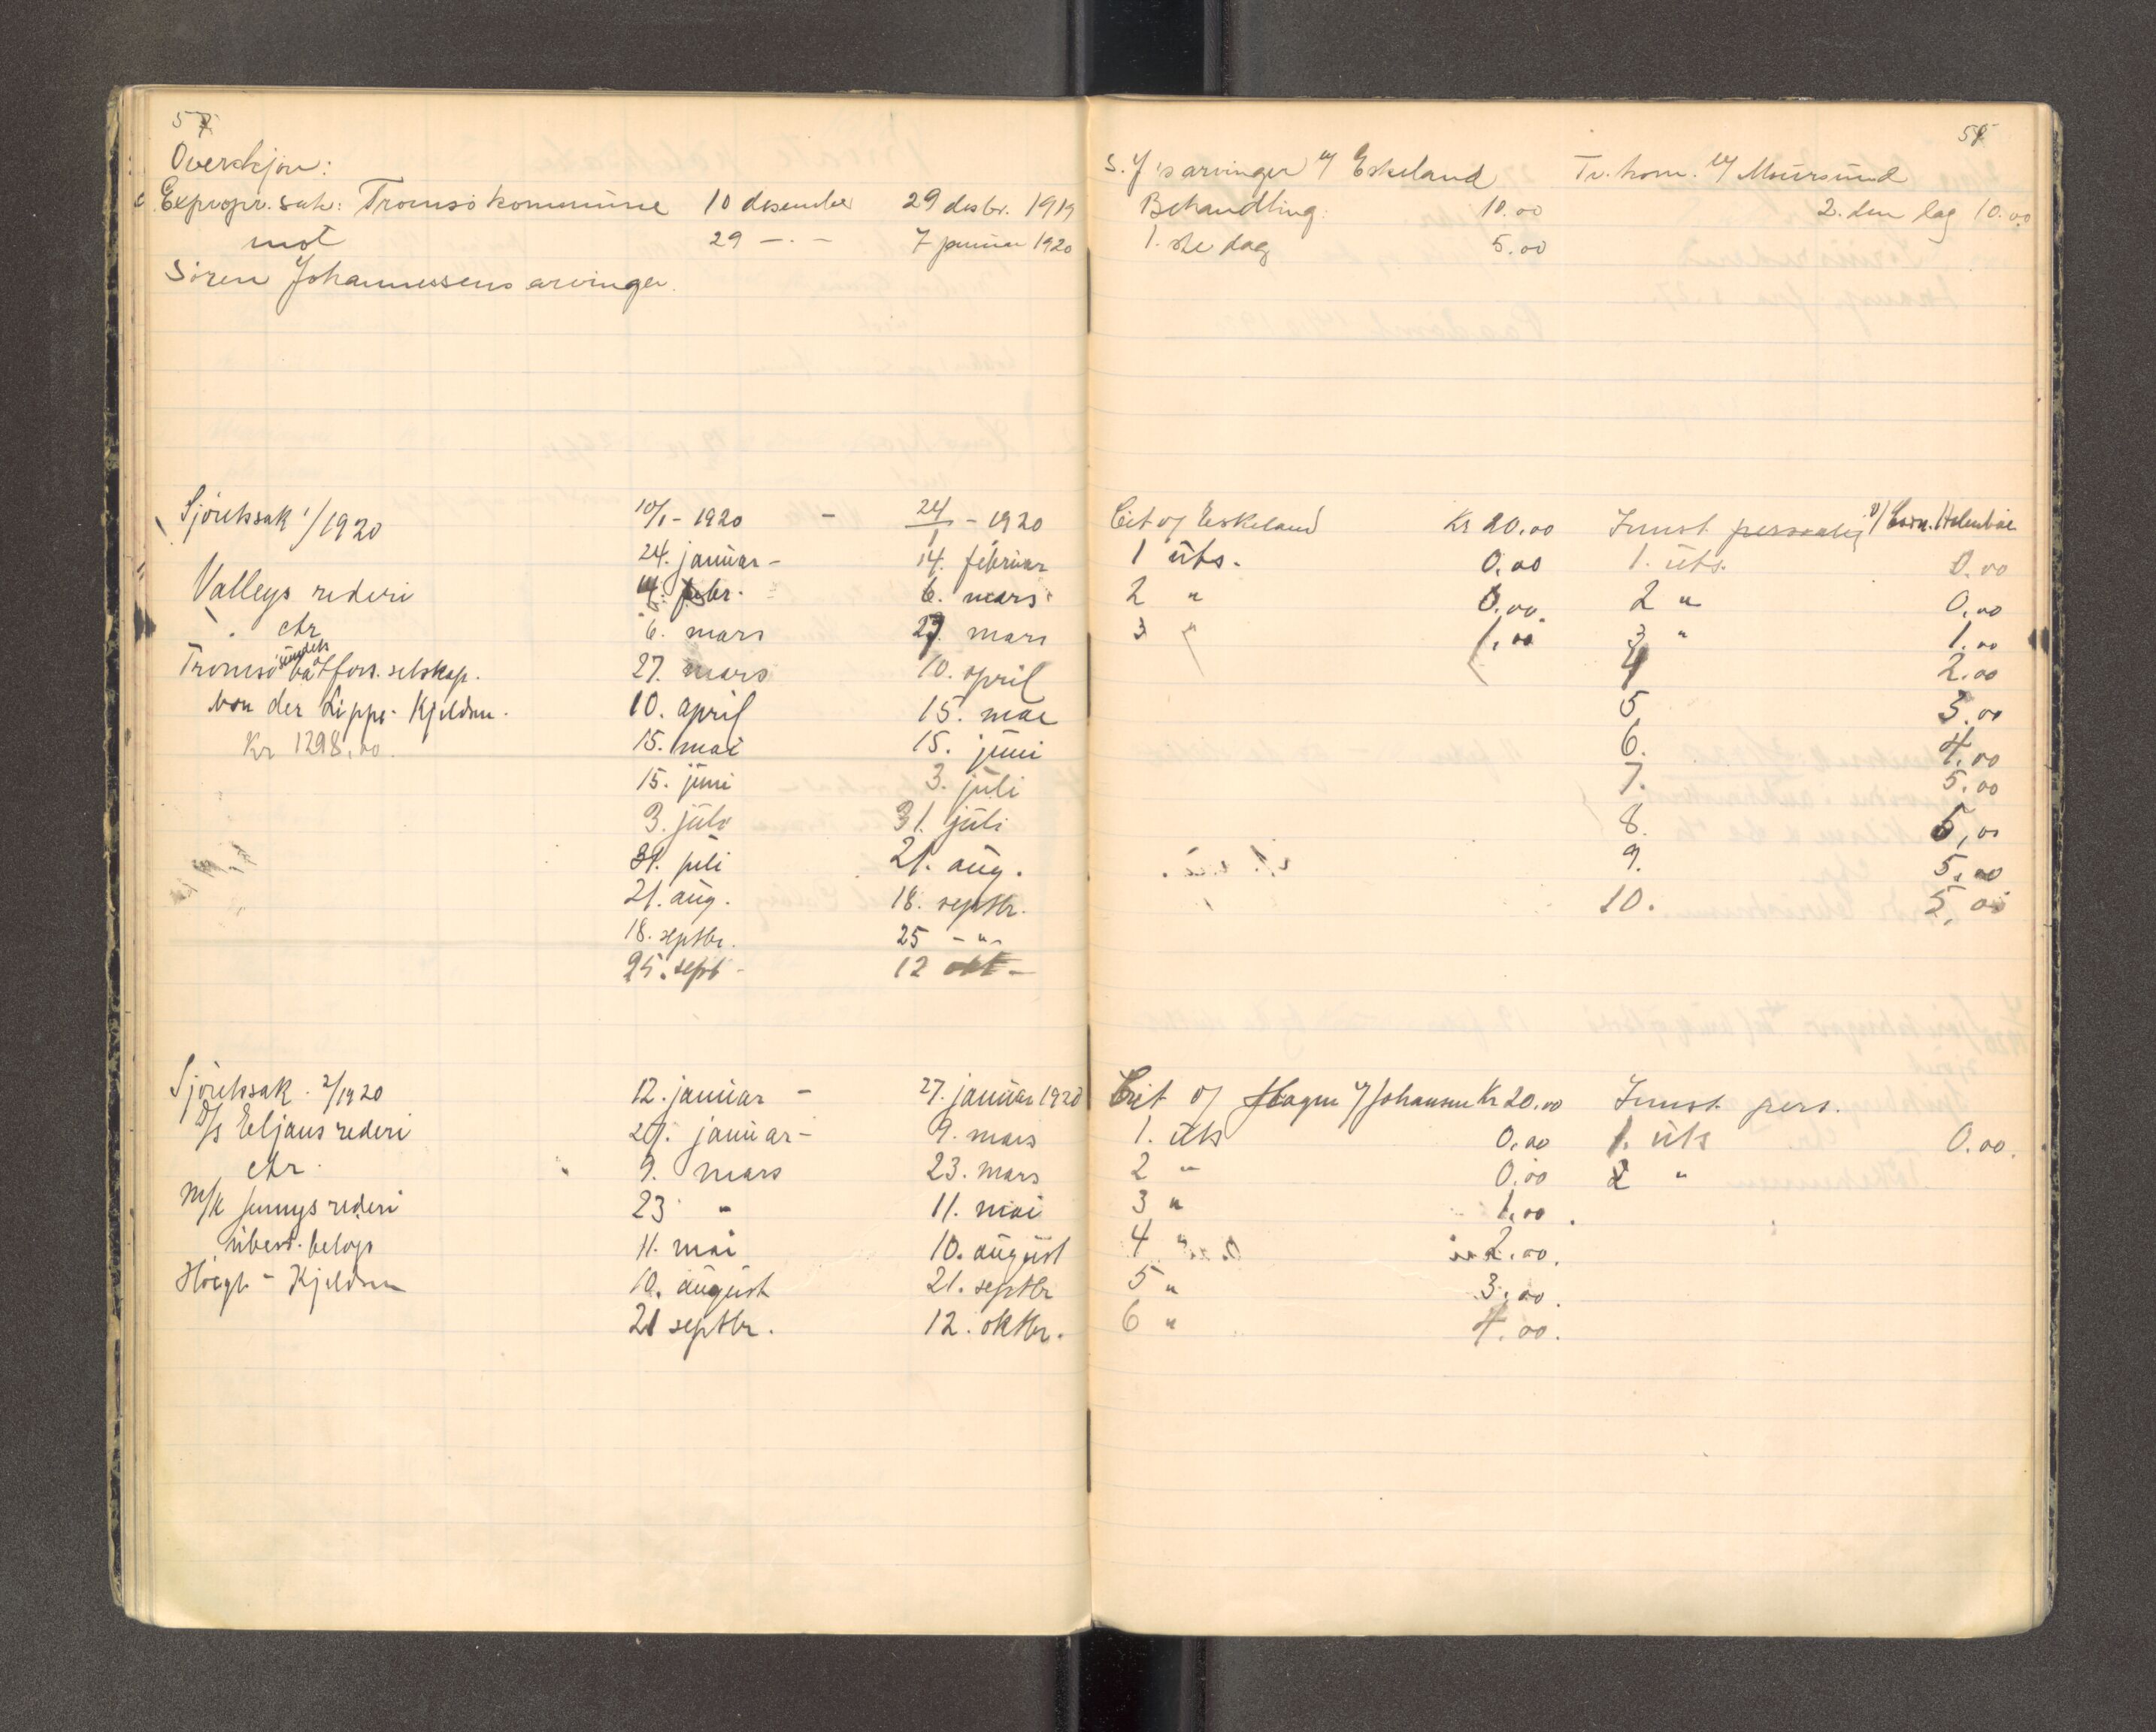 57
Overskjøn:
Expropr. sak: Tromsö kommune 10 desember 29 desbr. 1919
mot 29 —.— 7 januar 1920
Sören Johannessens arvinger.
Sjöretssak 1/1920 10/1 - 1920 - 24/1 - 1920
24. januar - 14. februar
Valleys rederi 14. febr. 6. mars
ctr 6. mars 27. mars
Tromsösundets båtfors. selskap. 27. mars 10. april
von der Lippe - Kjeldsen. 10. april 15. mai
Kr 1298,00. 15. mai 15. juni
15. juni 3. juli
3. juli 31. juli
31. juli 21. aug.
21. aug. 18. septbr.
18. septbr. 25 - " -
25. sept - 12 okt -
Sjöretssak. 2/1920 12. januar - 27. januar 1920
D/S Eljans rederi 27. januar - 9. mars
ctr. 9. mars 23. mars
M/K Jennys rederi 23 " 11. mai
11. mai 10. august
Höegh - Kjeldsen 10. august 21. septbr
21 septbr. 12. oktbr.
S. J's arvinger v/ Eskeland Tr. kom. v/ Moursund
Behandling: 10.00 2. den dag 10.00
1. ste dag 5.00
Cit v/ Eskeland Kr 20.00 Innst.
1 uts. 0.00 1. uts. 0.00
2 " 0.00. 2 " 0.00
3 " 1.00 3 " 1.00
4 2.00
5 3.00
6. 4.00
7. 5.00
8. 5,00
9. 5.00
10. 5.00
Cit v/ Hagen v/ Johannsen Kr 20.00 Innst. pers.
1. uts 0.00 1. uts 0.00.
2 " 0.00 2 "
3 " 1.00.
4 " 2.00.
5 " 3.00.
6 " 4.00.